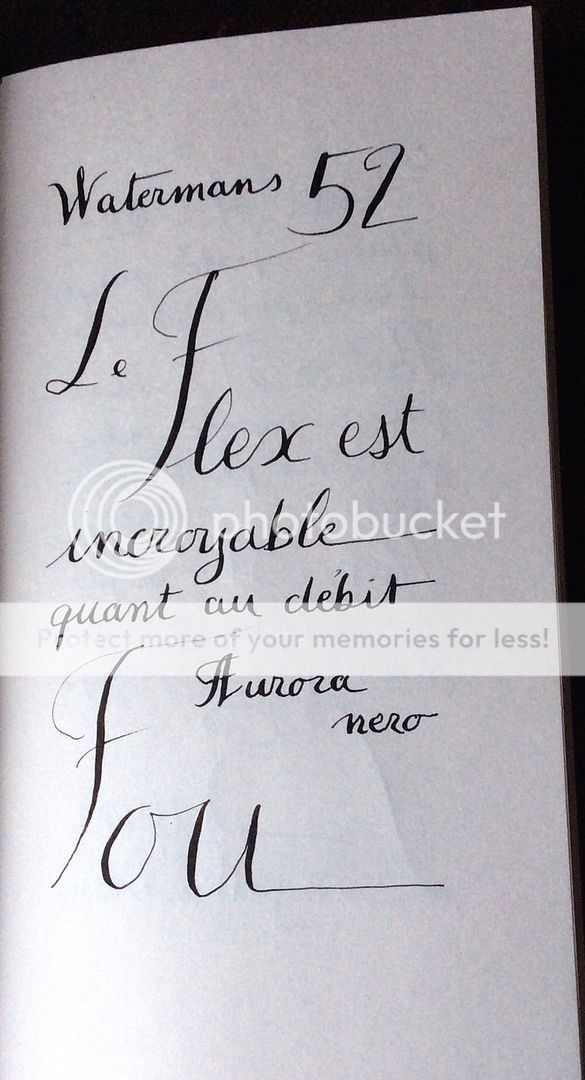 Watermans 52
Le Flex est
incroyable
photobucket
quant au débit
Protect more of your memories for less!
Aurora
nero
Fou